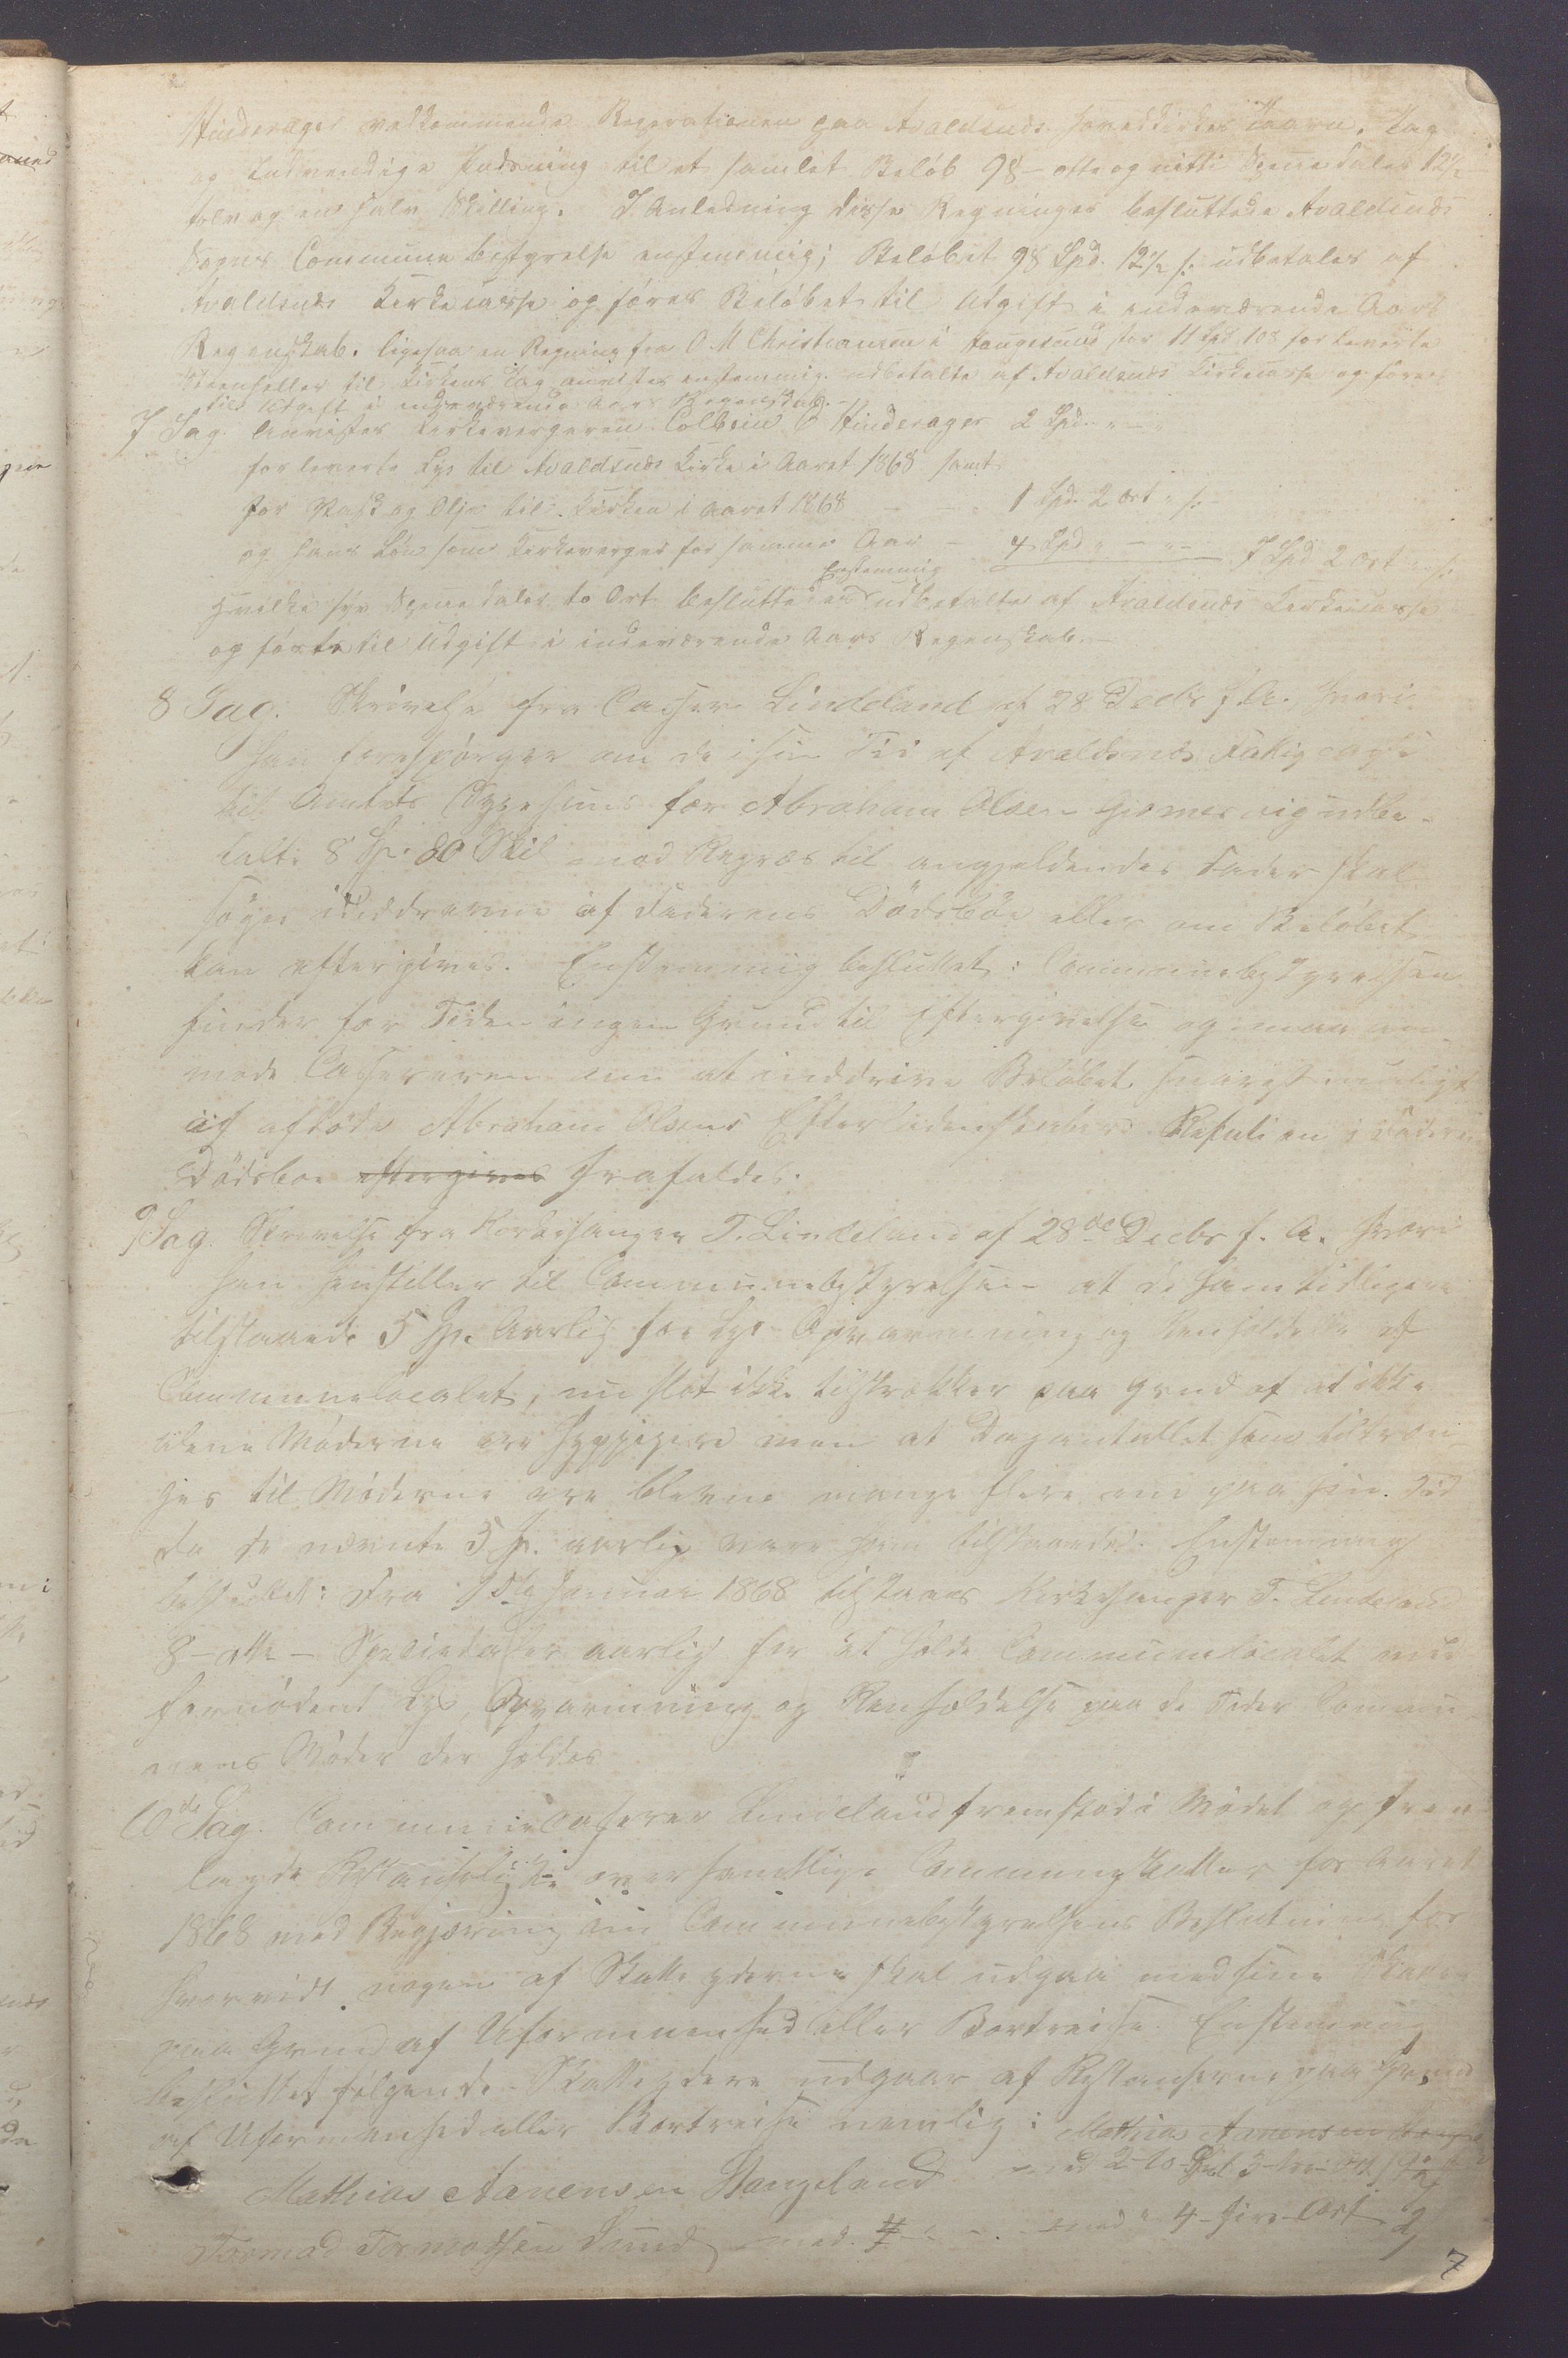 Hinderager vedkommende Reperationen paa Avaldsnæs Hovedkirkes Taarn, Tag
og Indvendige Pudsning til et samlet Beløb 98 - otte og nitti Speciedaler 12½
tolv og en halv Skilling. I Anledning disse Regninger besluttede Avaldsnæs
Sogns Commune bestyrelse enstemmig; Beløbet 98 Spd. 12½ s. udbetales af
Avaldsnæs Kirkecasse og føres Beløbet til Udgift i indeværende Aars
Regenskab. ligesaa en Regning fra O. M. Christiansen i Haugesund stor 11 Spd 108 for leverte
Steenheller til Kirkens Tag anvistes enstemmig udbetalte af Avaldsnæs Kirkecasse og føres
til Udgift i indeværende Aars Regenskab.
7 Sag. Anvistes Kirkevergeren Colbein O Hinderager 2 Spd. " - "
for leverte Lys til Avaldsnæs Kirke i Aaret 1868 samt
for Vask og Olje til Kirken i Aaret 1868 - - - 1 Spd. 2 Ort " s.
og hans Løn som Kirkeverger for samme Aar - 4 Spd " - " - 7 Spd 2 Ort " s.
Enstemmig
hvilke syv Speciedaler to Ort besluttedes udbetalte af Avaldsnæs Kirkecasse
og førte til Udgift i indeværende Aars Regenskab. -
8 Sag. Skrivelse fra Casserer Lindeland af 28 Decbr f. A., hvori
han forespørger om de i sin Tid af Avaldsnæs Fattigcasse
til Amtets Sygehuus for Abraham Olsen udbe-
talte 8 Sp. 80 Skil mod Regres til angjældendes Fader skal
søges inddrevne af Faderens Dødsboe eller om Beløbet
kan eftergives. Enstemmig besluttet: Communebestyrelsen
finder for Tiden ingen Grund til Eftergivelse og maa an-
mode Cassereren om at inddrive Beløbet snarest muligt
af afdøde Abraham Olsens Efterladenskaber. i Faderens
Dødsboe eftergives frafaldes.
9 Sag. Skrivelse fra Kirkesanger T. Lindeland af 28de Decbr f. A. hvori
han henstiller til Communebestyrelsen at de ham tidligere
tilstaaede 5 Sp. Aarlig for Lys Opvarmning og Renholdelse af
Communelocalet, nu slet ikke tilstrækker paa Grund af at ikke
alene Møderne ere hyppigere men at Dagantallet som tiltræn-
ges til Møderne ere blevne mange flere end paa hin Tid
da de nævnte 5 Sp. aarlig vare ham tilstaaede. Enstemmig
besluttet: Fra 1ste Januar 1868 tilstaaes Kirkesanger T. Lindeland
8 - otte - Speciedaler aarlig for at holde Communelocalet med
fornødent Lys, Opvarmning og Renholdelse paa de Tider Commu-
nens Møder der holdes
10de Sag. Communecasserer Lindeland fremstod i Mødet og frem-
lagde Restanseliste over samtlige Communeskatter for Aaret
1868 med Begjæring om Communebestyrelsens Beslutning for
hvorvidt nogen af Skatteyderne skal udgaa med sine Skatter
paa Grund af Uformuenhed eller Bortreise. Enstemmig
besluttet følgende Skatteydere udgaar af Restanserne paa Grund
af Uformuenhed eller Bortreise nemlig: Mathias Aanensen
Mathias Aanensen Stangeland med 2 - to - Spd 3 - tre - Ort
Tormod Tormodsen Sund med " - . - med " 4 - fire - Ort 2
7